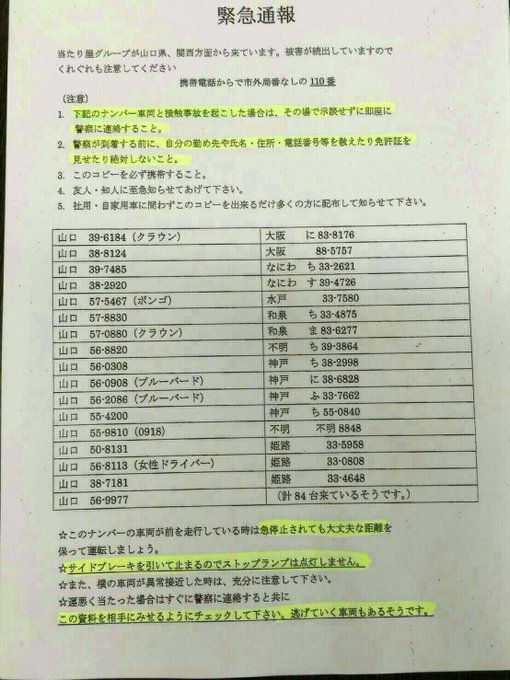 緊急通報
当たり屋グループが山口県、関西方面から来ています。被害が続出していますので
くれぐれも注意してください
携帯電話からで市外局番なしの 110 番
(注意)
1. 下記のナンバー車両と接触事故を起こした場合は、その場で示談せずに即座に
警察に連絡すること。
2. 警察が到着する前に、自分の勤め先や氏名・住所・電話番号等を教えたり免許証を
見せたり絶対しないこと。
3. このコピーを必ず携帯すること。
4. 友人・知人に至急知らせてあげて下さい。
5. 社用・自家用車に問わずこのコピーを出来るだけ多くの方に配布して知らせて下さい。
山口 39-6184(クラウン) 大阪 に 83-8176
山口 38-8124 大阪 88-5757
山口 39-7485 なにわ ち 33-2621
山口 38-2920 なにわ す 39-4726
山口 57-5467(ボンゴ) 水戸 33-7580
山口 57-8830 和泉 ち 33-4875
山口 57-0880(クラウン) 和泉 ま 83-6277
山口 56-8820 不明 ち 39-3864
山口 56-0308 神戸 ち 38-2998
山口 56-0908(ブルーバード) 神戸 に 38-6828
山口 56-2086(ブルーバード) 神戸 ふ 33-7662
山口 55-4200 神戸 ち 55-0840
山口 55-9810(0918) 不明 不明 8848
山口 50-8131 姫路 33-5958
山口 56-8113(女性ドライバー) 姫路 33-0808
山口 38-7181 姫路 33-4648
山口 56-9977 (計 84 台来ているそうです。)
☆このナンバーの車両が前を走行している時は急停止されても大丈夫な距離を
保って運転しましょう。
☆サイドブレーキを引いて止まるのでストップランプは点灯しません。
☆また、横の車両が異常接近した時は、充分に注意して下さい。
☆運悪く当たった場合はすぐに警察に連絡すると共に
この資料を相手にみせるようにチェックして下さい。逃げていく車両もあるそうです。